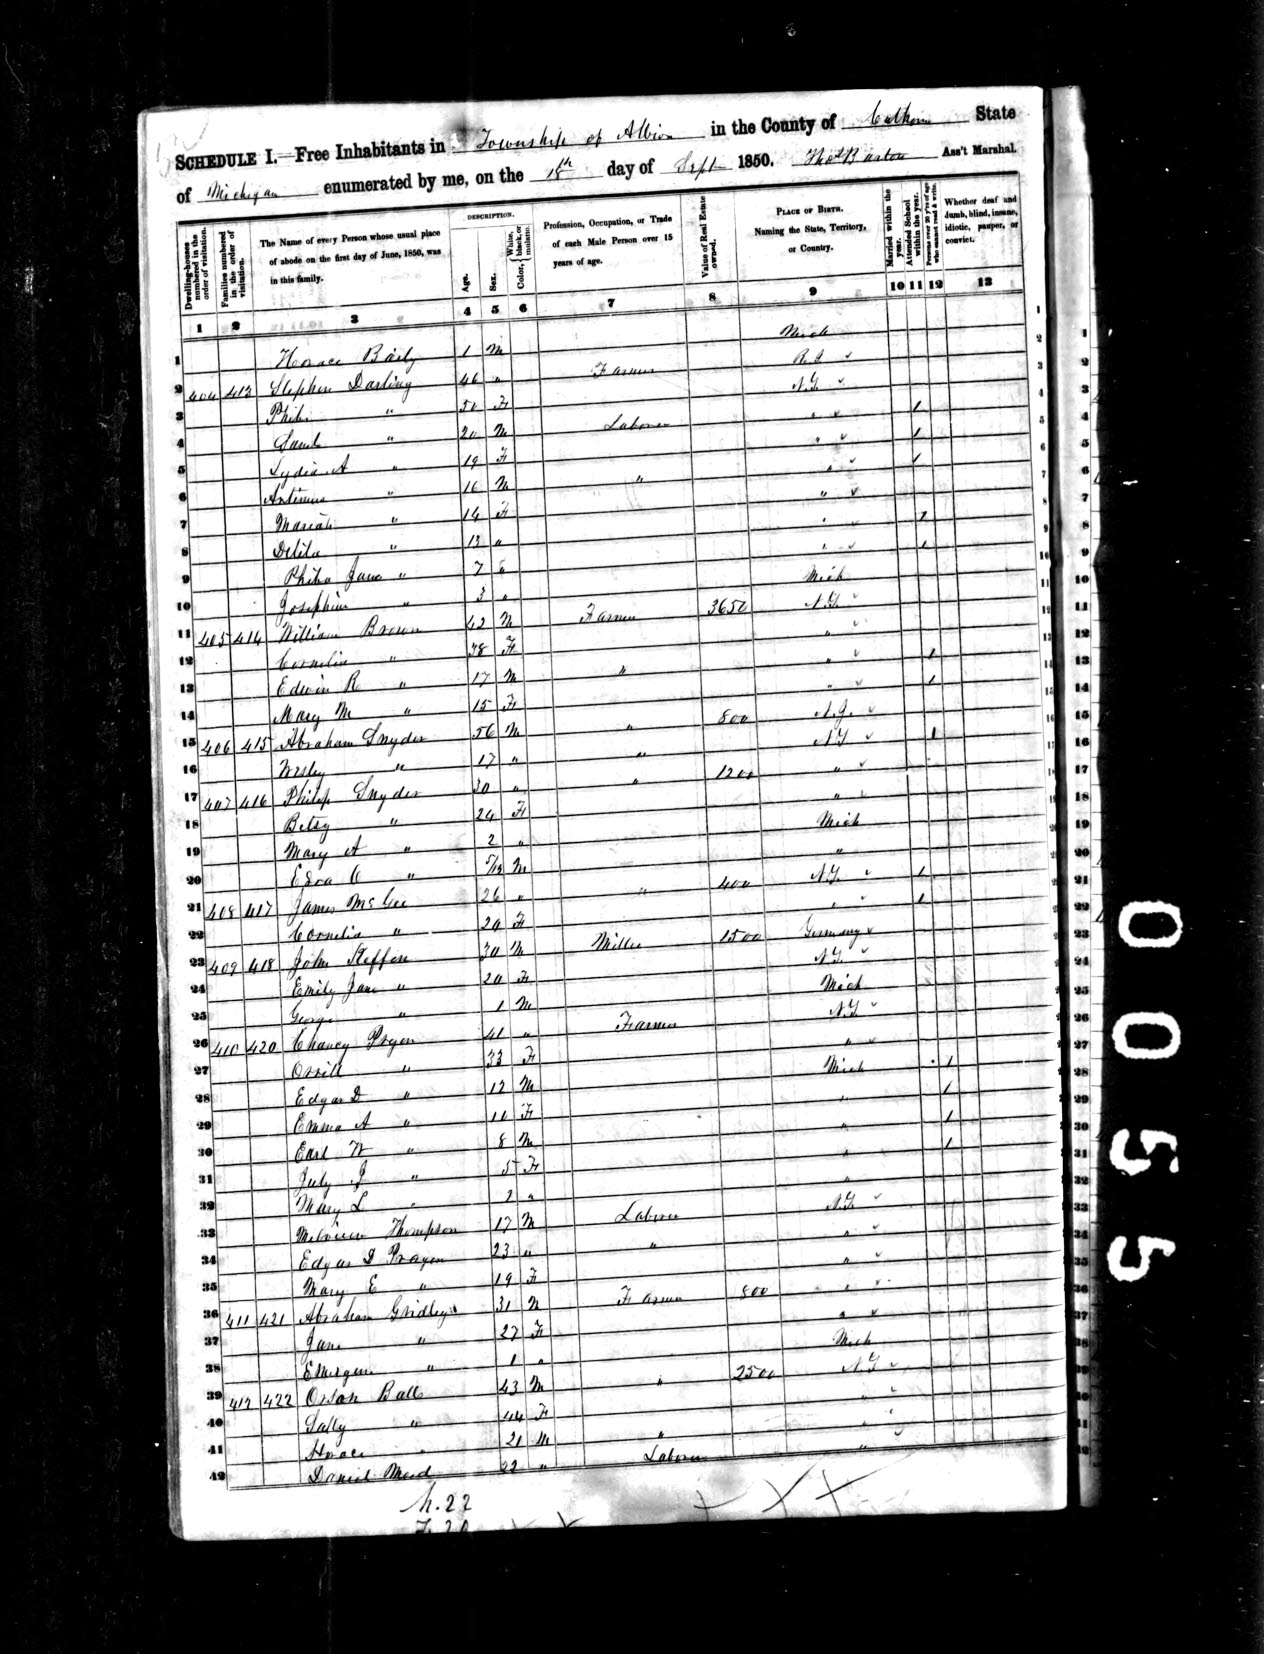 SCHEDULE I.—Free Inhabitants in Township of Albion in the County of Calhoun State
of Michigan enumerated by me, on the 18th day of Sept 1850. Thos Barton Ass't Marshal.
Dwelling-houses numbered in the order of visitation.
Families numbered in the order of visitation.
The Name of every Person whose usual place of abode on the first day of June, 1850, was in this family.
DESCRIPTION.
Age.
Sex.
Color, White, black, or mulatto.
Profession, Occupation, or Trade of each Male Person over 15 years of age.
Value of Real Estate owned.
PLACE OF BIRTH. Naming the State, Territory, or Country.
Married within the year.
Attended School within the year.
Persons over 20 y'rs of age who cannot read & write.
Whether deaf and dumb, blind, insane, idiotic, pauper, or convict.
1 2 3 4 5 6 7 8 9 10 11 12 13
1 Horace Baily 1 M Mich
2 404 413 Stephen Darling 46 " Farmer R I
3 " 50 F N.Y.
4 Saml " 20 M Laborer " 1
5 Lydia A " 19 F " 1
6 " 16 M " " 1
7 Mariah " 14 F "
8 Delila " 13 " " 1
9 Jane " 7 " " 1
10 Josephine " 3 " Mich
11 405 414 William Brown 42 M Farmer 3650 N.Y.
12 Cornelia " 38 F "
13 Edwin R " 17 M " " 1
14 Mary M " 15 F " 1
15 406 415 Abraham Snyder 56 M " 800 N.J.
16 Wesley " 17 " " N.Y. 1
17 407 416 Philip Snyder 30 " " 1200 "
18 Betsy " 24 F "
19 Mary A " 2 " Mich
20 Ezra " 5/12 M "
21 408 417 James McGee 26 " " 400 N.Y. 1
22 Cornelia " 20 F " 1
23 409 418 John Steffen 30 M Miller 1500 Germany
24 Emily Jane " 20 F N.Y.
25 George " 1 M Mich
26 410 420 Chancy Pryen 41 " Farmer N.Y.
27 " 33 F "
28 Edgar D " 12 M Mich 1
29 Emma A " 10 F " 1
30 Earl W " 8 M " 1
31 July J " 5 F " 1
32 Mary L " 2 " "
33 Thompson 17 M Laborer N.Y.
34 Edgar D 23 " " "
35 Mary E " 19 F "
36 411 421 Abraham Gridley 31 M Farmer 800 "
37 Jane " 27 F "
38 " 1 " Mich
39 412 422 Orson Ball 43 M " 2500 N.Y.
40 Sally " 44 F "
41 Horace " 21 M " "
42 Daniel Mead 22 " Laborer "
M. 22
F. 20
0055